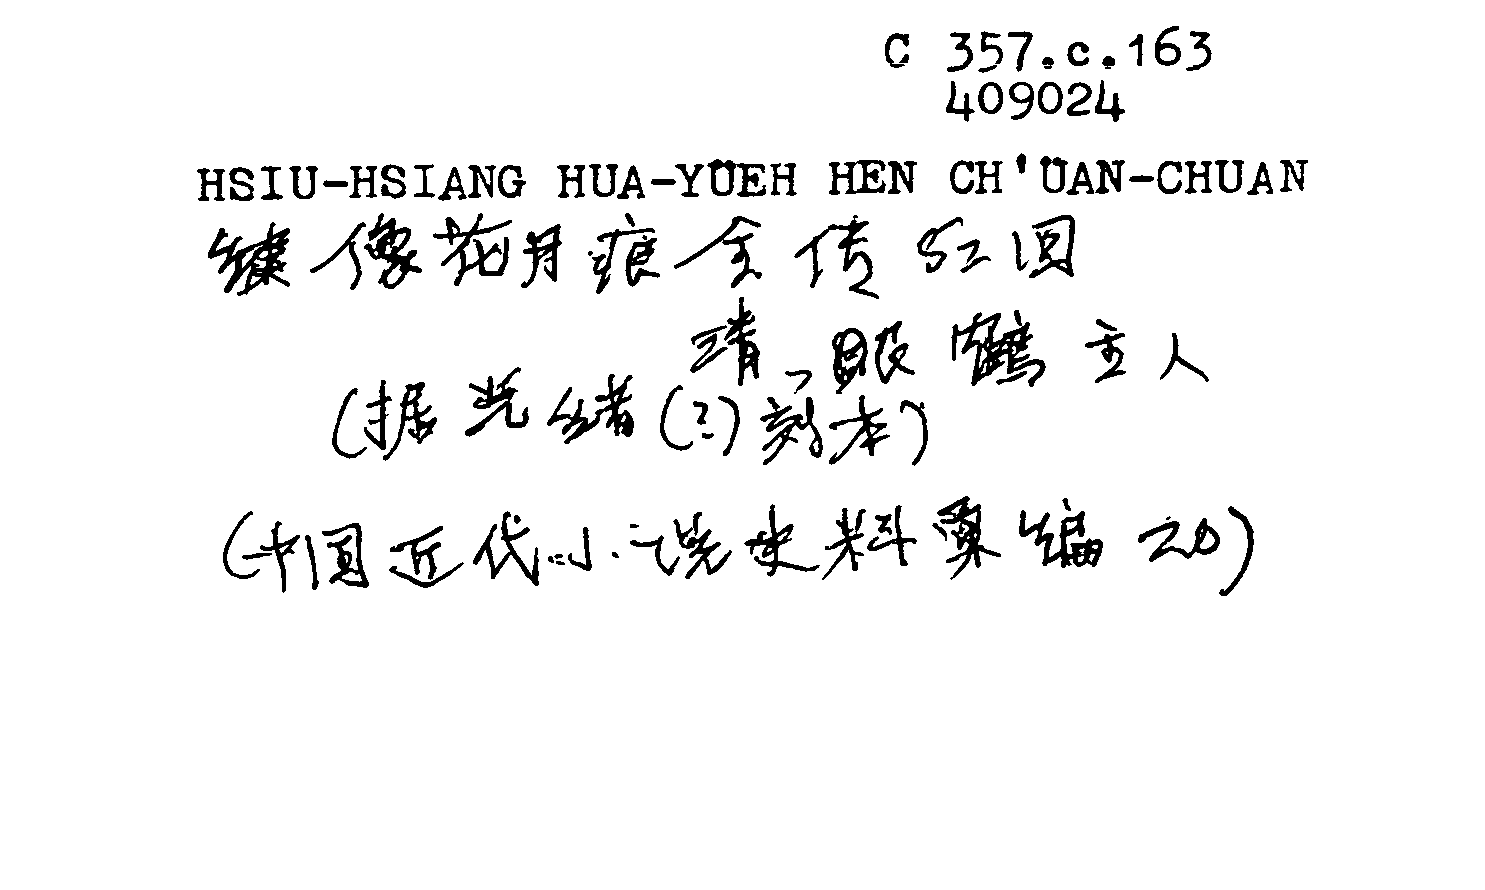 C 357.c.163
409024
HSIU-HSIANG HUA-YÜEH HEN CH'ÜAN-CHUAN
繡像花月痕全传 52回
清、眠鶴主人
(据光绪(?)刻本)
(中国近代小说史料彙编 20)